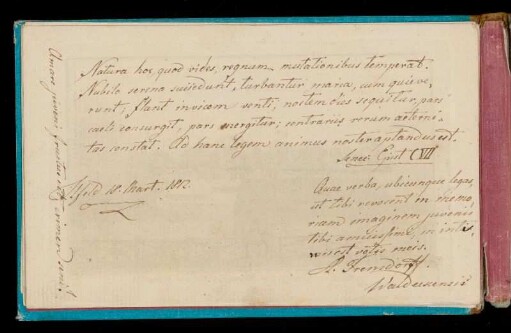 Natura hoc quod vides, regnum mutationibus temperat.
Nubilo serena succedunt, turbantur maria, cum quieve-
runt; flant invicem venti; noctem dies sequitur, pars
caeli consurgit, pars mergitur; contrariis rerum aeterni-
tas constat. Ad hanc legem animus noster aptandus est.
Senec. Epist CVII
feld 18. Mart. 1812.
Quae verba, ubicunque legas,
ut tibi revocent in memo-
riam imaginem juvenis
tibi amicissimi, in intis
est votis meis.
Frensdorff.
Waldeccensis